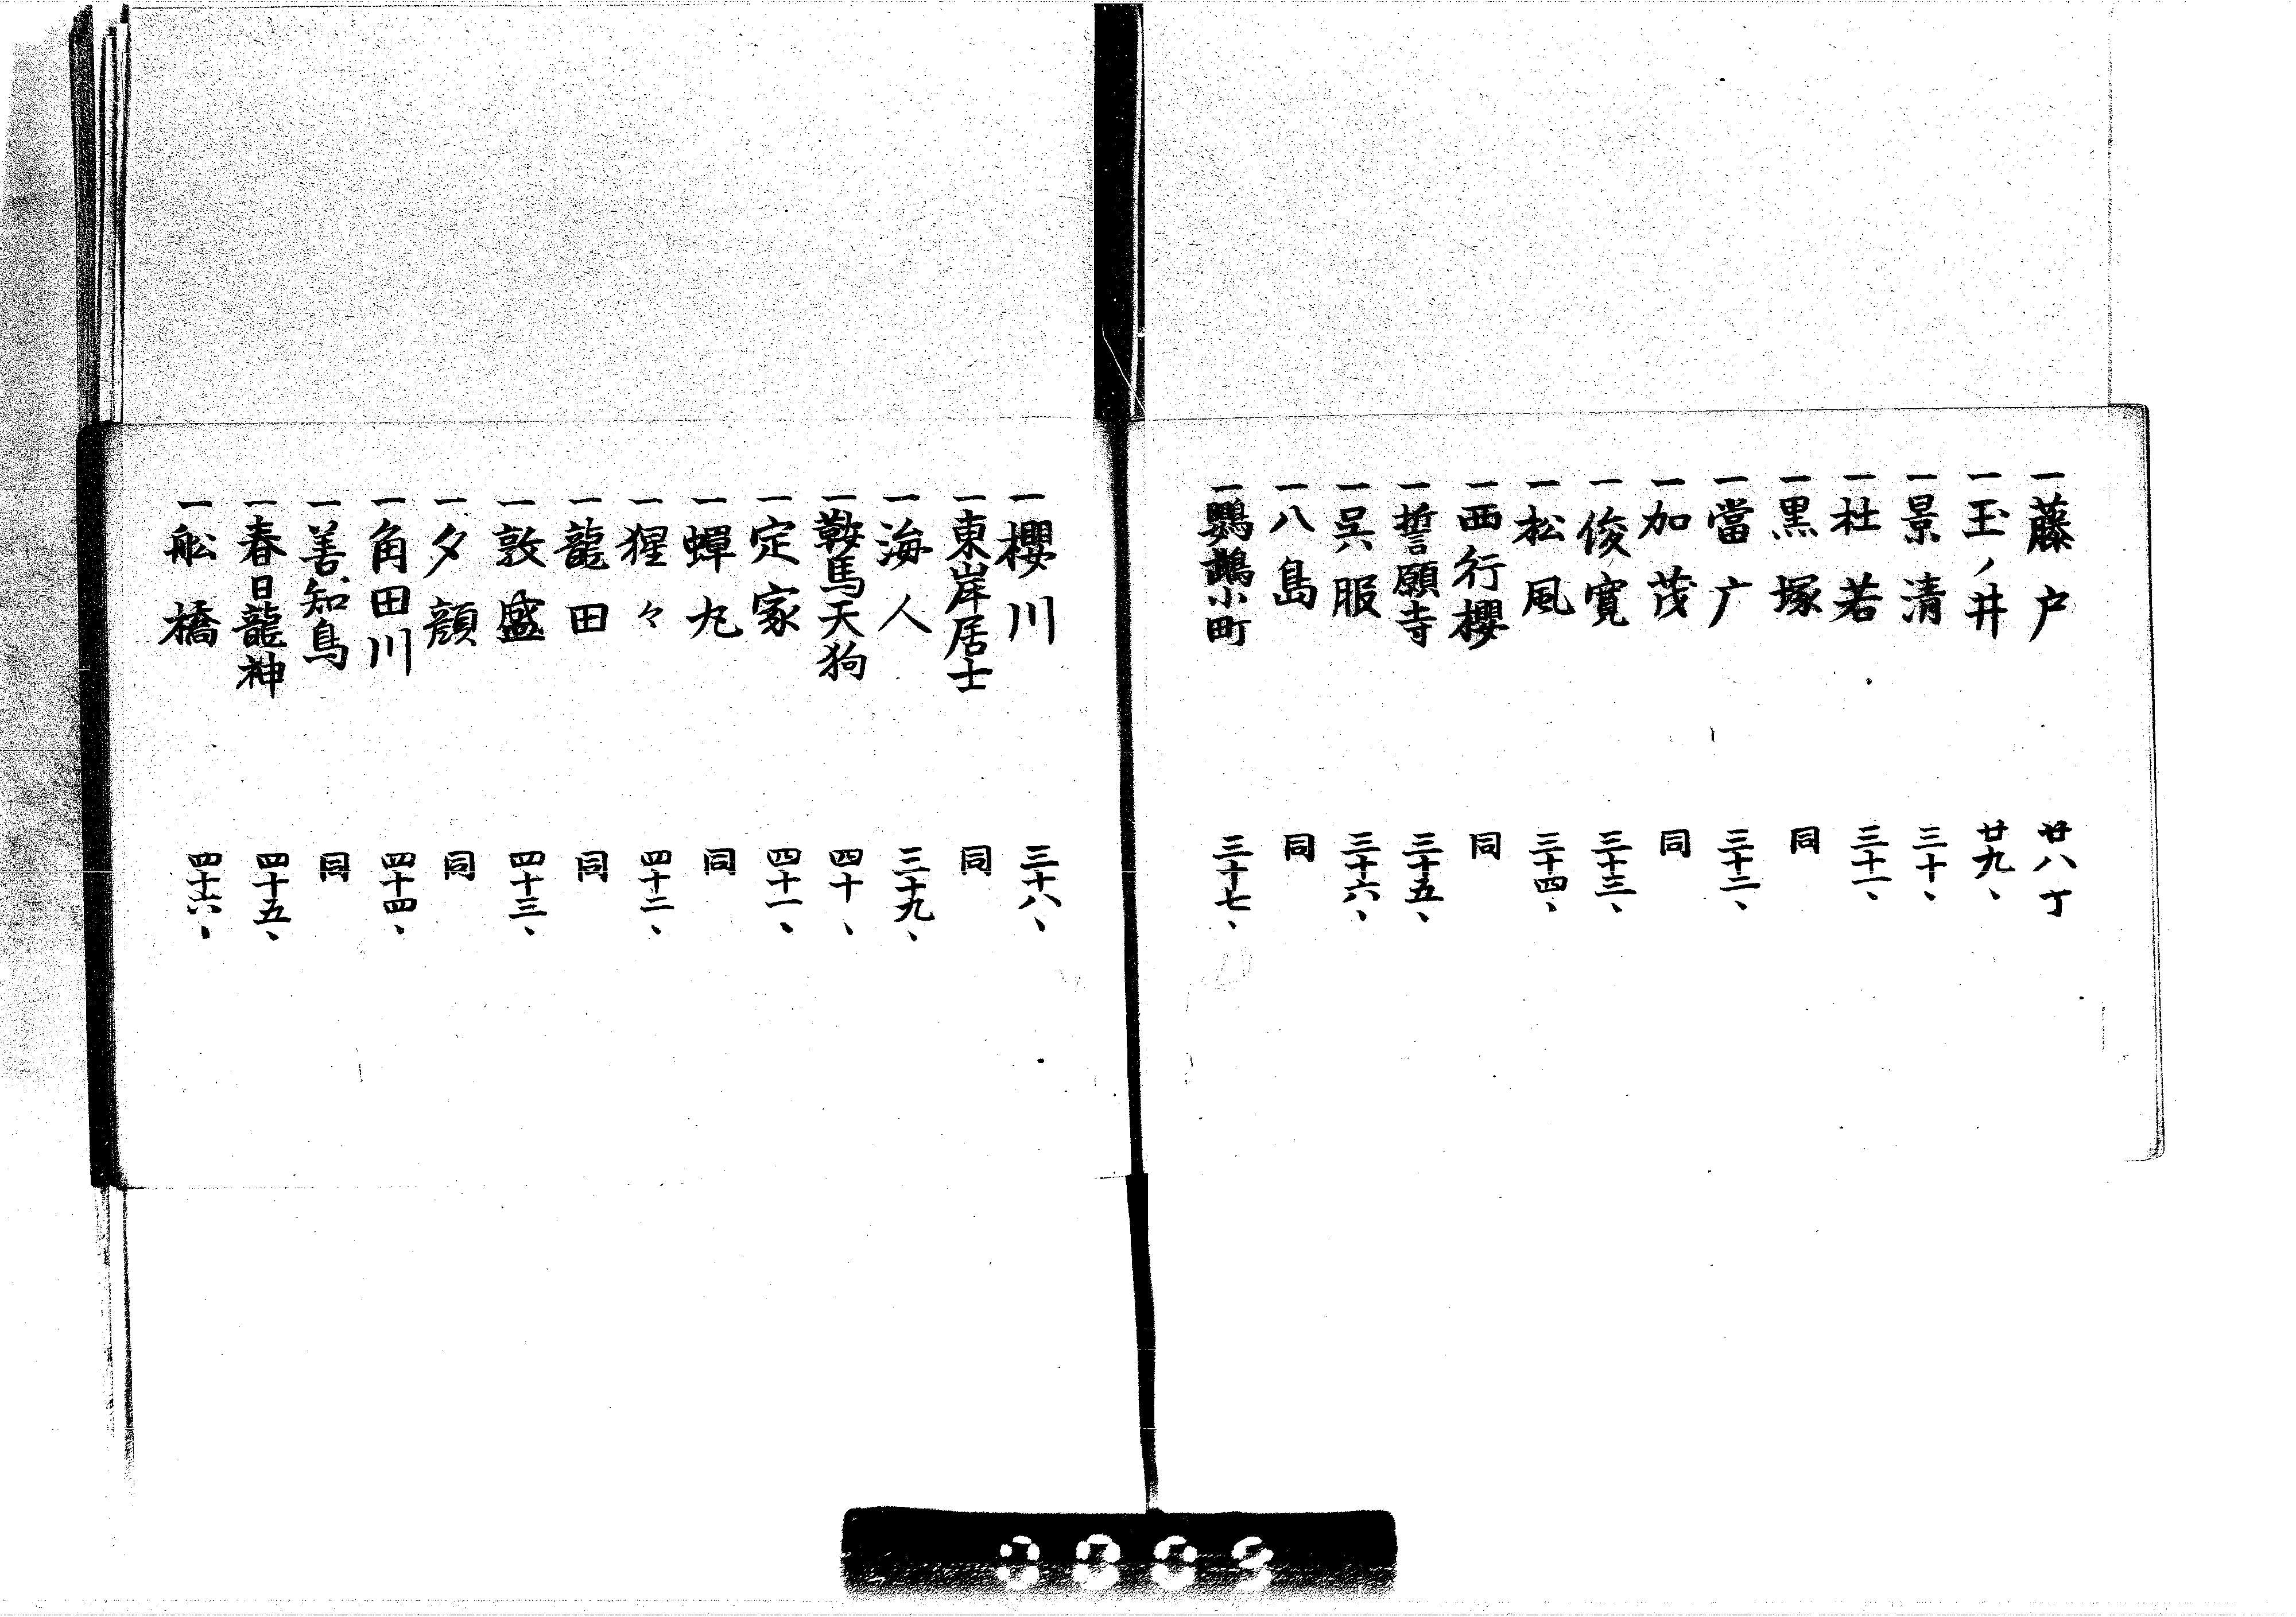 一藤戸 廿八丁
一玉ノ井 廿九、
一景清 三十、
一杜若 三十一、
一黒塚 同
一當广 三十二、
一加茂 同
一俊寛 三十三、
一松風 三十四、
一西行櫻 同
一誓願寺 三十五、
一呉服 三十六、
一八島 同
一鸚鵡小町 三十七、
一櫻川 三十八、
一東岸居士 同
一海人 三十九、
一鞍馬天狗 四十、
一定家 四十一、
一蟬丸 同
一猩々 四十二、
一龍田 同
一敦盛 四十三、
一夕顔 同
一角田川 四十四、
一善知鳥 同
一春日龍神 四十五、
一舩橋 四十六、